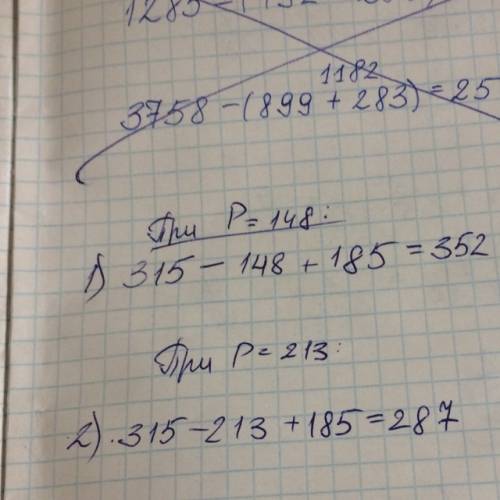 1285 - (192
1182
3758 - (899 + 283) = 25
При P = 148:
1) 315 - 148 + 185 = 352
При P = 213:
2) 315 - 213 + 185 = 287